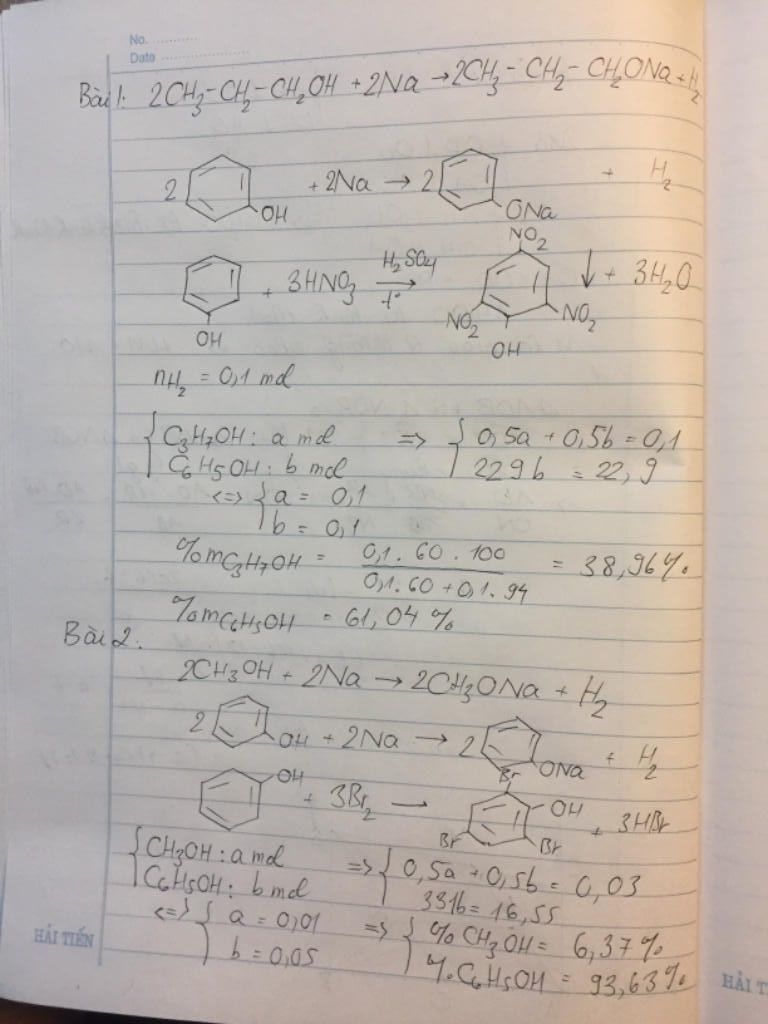 No. ............
Date ........................
Bài 1: 2CH3-CH2-CH2OH + 2Na → 2CH3-CH2-CH2ONa + H2
2 OH + 2Na → 2 ONa + H2
OH + 3HNO3 H2SO4 → t° NO2 NO2 NO2 OH ↓ + 3H2O
nH2 = 0,1 mol
{ C3H7OH : a mol => { 0,5a + 0,5b = 0,1
C6H5OH : b mol 229b = 22,9
<=> { a = 0,1
b = 0,1
%mC3H7OH = 0,1 . 60 . 100 / 0,1 . 60 + 0,1 . 94 = 38,96%
%mC6H5OH = 61,04 %
Bài 2:
2CH3OH + 2Na → 2CH3ONa + H2
2 OH + 2Na → 2 ONa + H2
OH + 3Br2 → Br OH Br Br + 3HBr
{ CH3OH : a mol => { 0,5a + 0,5b = 0,03
C6H5OH : b mol 331b = 16,55
<=> { a = 0,01 => { % CH3OH = 6,37 %
b = 0,05 % C6H5OH = 93,63%
HẢI TIẾN
HẢI T